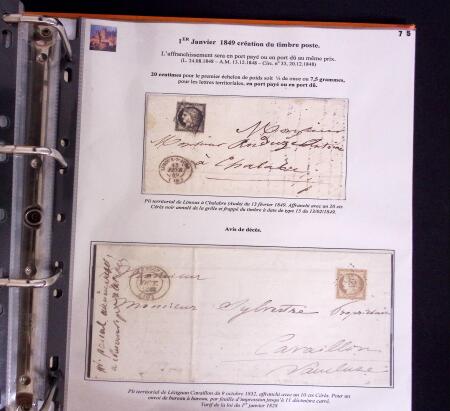 75
1ER Janvier 1849 création du timbre poste.
L'affranchissement sera en port payé ou en port dû au même prix.
(L. 24.08.1848 - A.M. 13.12.1848 - Circ. n° 33, 20.12.1848)
20 centimes pour le premier échelon de poids soit ¼ de once ou 7,5 grammes,
pour les lettres territoriales, en port payé ou en port dû.
Monsieur
Monsieur
à Chalabre
Pli territorial de Limoux à Chalabre (Aude) du 13 février 1849. Affranchi avec un 20 cts
Cérès noir annulé de la grille et frappé du timbre à date de type 15 du 13/02/1849.
Avis de décès.
Monsieur
Monsieur Sylvestre
Cavaillon
Vaucluse
Pli territorial de Lézignan Cavaillon du 9 octobre 1852, affranchi avec un 10 cts Cérès. Pour un
envoi de bureau à bureau, par feuille d'impression jusqu'à 11 décimètre carré.
Tarif de la loi de 1er janvier 1828